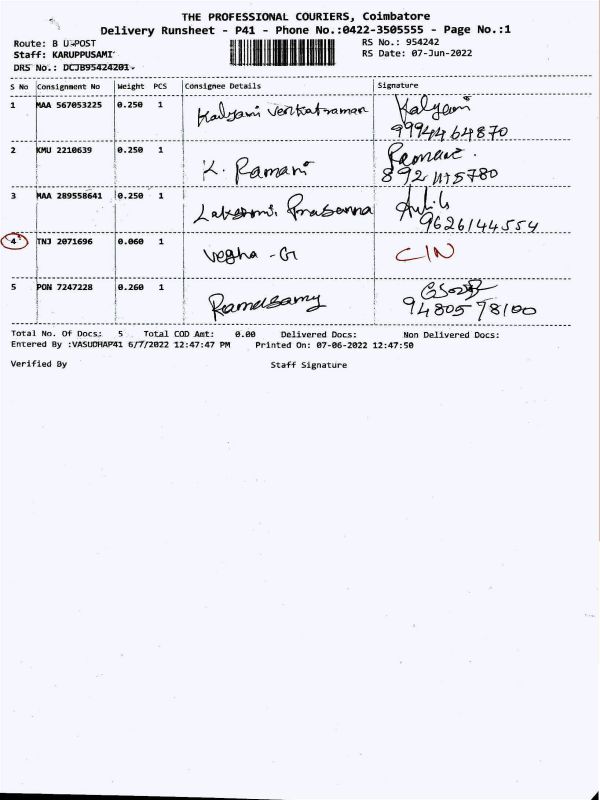 THE PROFESSIONAL COURIERS, Coimbatore
Delivery Runsheet - P41 - Phone No.:0422-3505555 - Page No.:1
Route: B U POST
RS No.: 954242
Staff: KARUPPUSAMI
RS Date: 07-Jun-2022
DRS No.: DCJB95424201
S No Consignment No Weight PCS Consignee Details Signature
1 MAA 567053225 0.250 1 Kalyani Venkatraman Kalyani
9994464870
2 KMU 2210639 0.250 1 K. Ramani Ramani
892 5780
3 MAA 289558641 0.250 1 Lakshmi Prasanna
9626144554
4 TNJ 2071696 0.060 1 Vegha - G CIN
5 PON 7247228 0.260 1 Ramasamy
9480578100
Total No. Of Docs: 5 Total COD Amt: 0.00 Delivered Docs: Non Delivered Docs:
Entered By :VASUDHAP41 6/7/2022 12:47:47 PM Printed On: 07-06-2022 12:47:50
Verified By Staff Signature